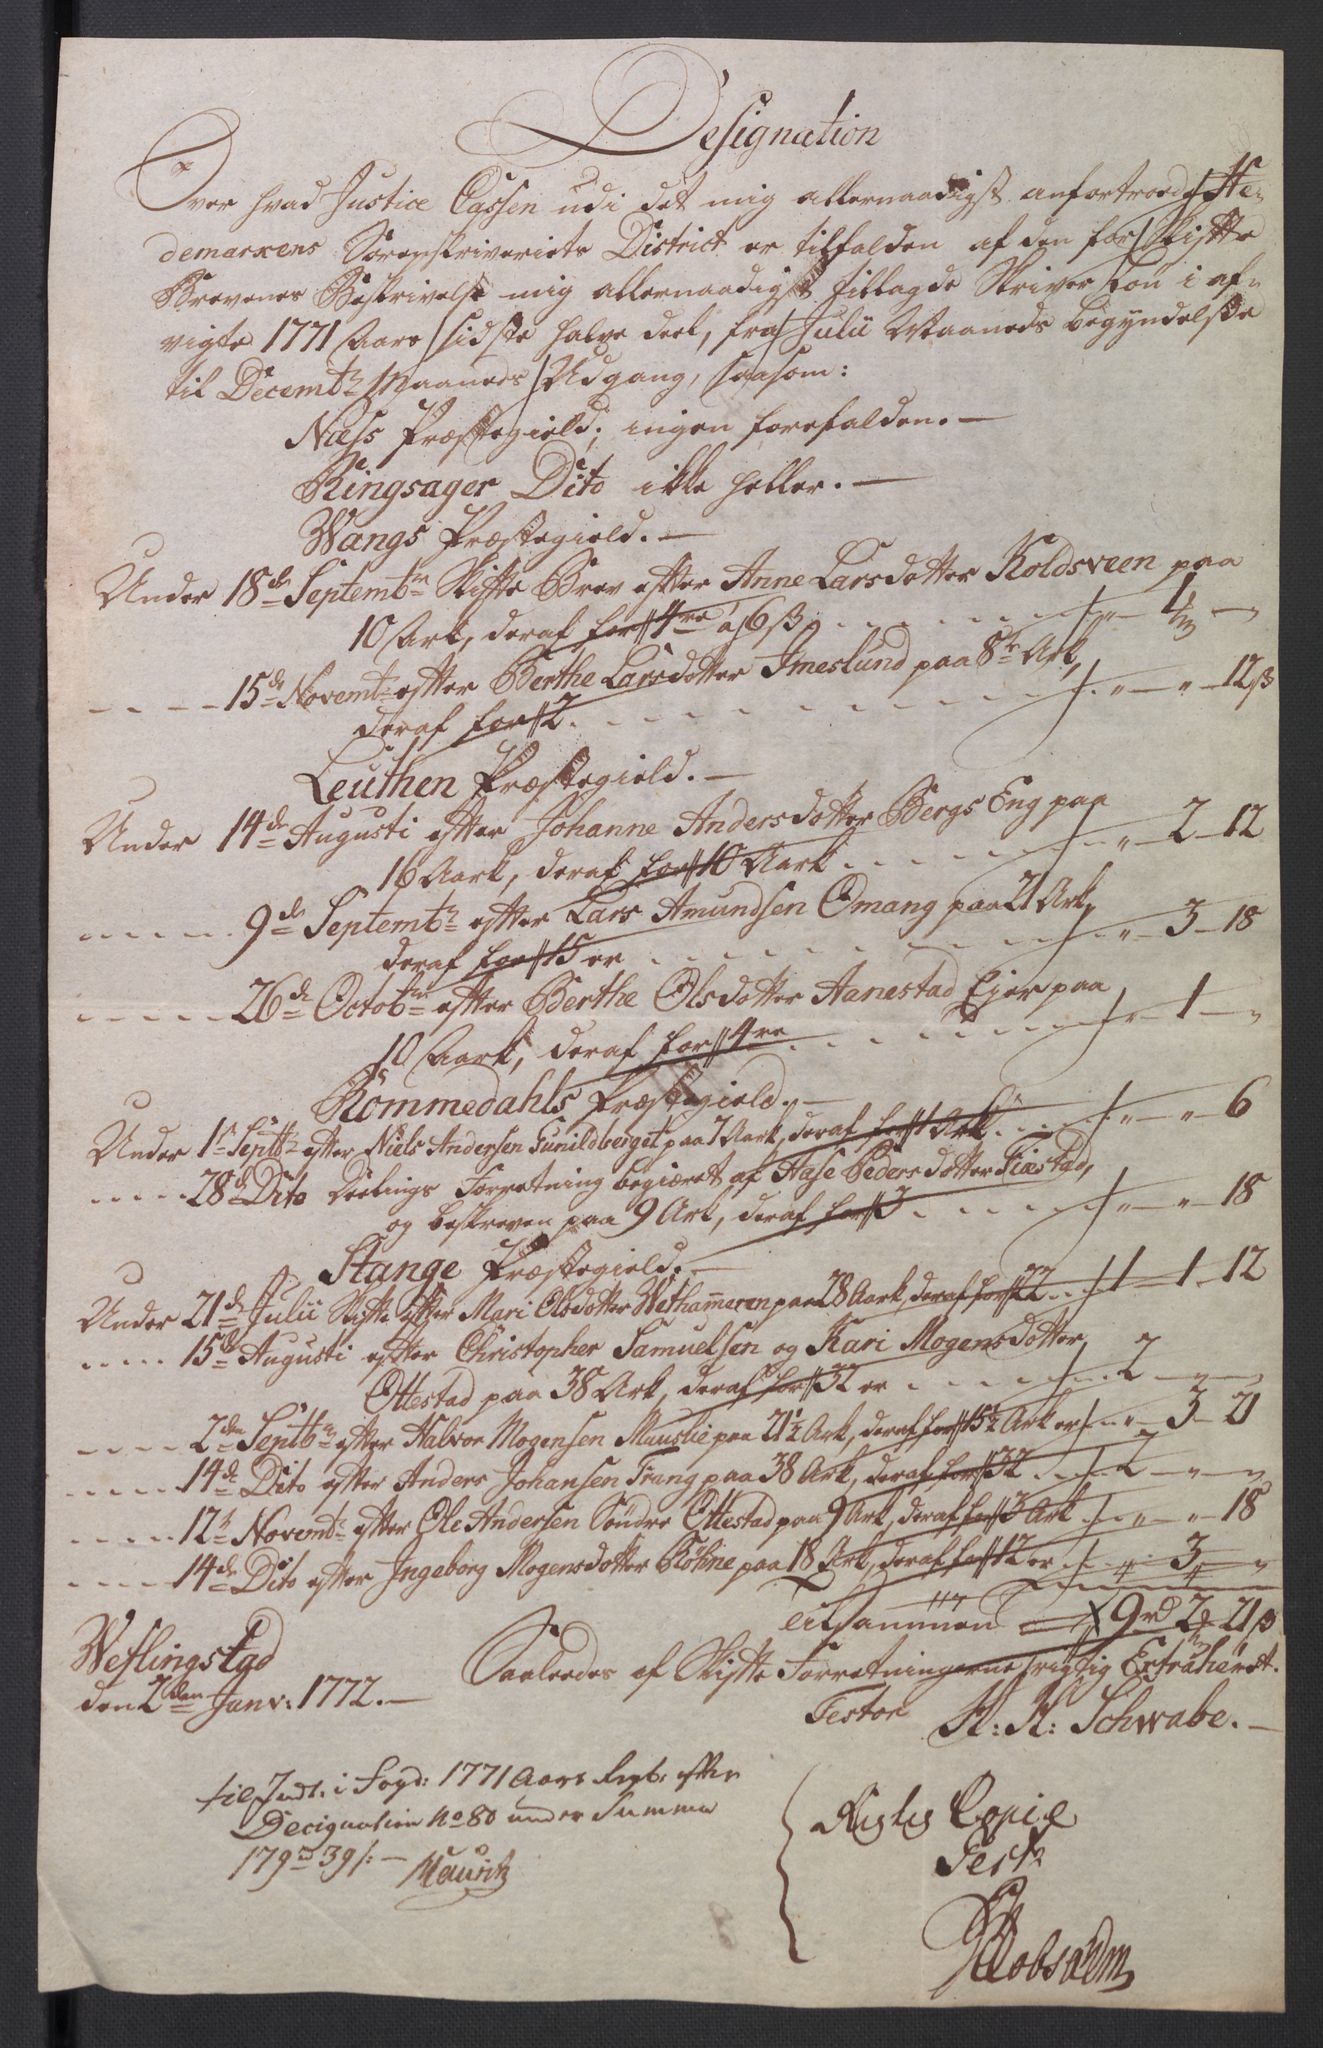 Designation
Over hvad Justice Cassen udi det mig allernaadigst anfortroede He-
demarkens Sorenskriveriets District er tilfalden af den for Skifte
Brevenes Beskrivelse mig allernaadigst tillagde Skriver Løn i af-
vigte 1771 Aars sidste halve deel, fra Julii Maaneds begyndelse
til Decembr Maaneds Udgang, saasom:
Næss Præstegield; ingen forefalden. —
Ringsager Dito ikke heller. —
Wangs Præstegield. —
Under 18de Septembr Skifte Brev efter Anne Larsdotter Koldsveen paa
10 Ark, deraf for 4re á 6 s " — 1 —
— 15de Novembr efter Berthe Larsdotter Imeslund paa 8te Ark,
deraf for 2 " — " — 12 s
Leuthen Præstegield. —
Under 14de Augusti efter Johanne Andersdotter Bergs Eng paa
16 Aark, deraf for 10 Aark " 2 — 12
9de Septembr efter Lars Amundsen Omang paa 21 Ark,
deraf for 15 er " — 3 — 18
26de Octobr efter Berthe Olsdotter Aanestad Eger paa
10 Aark, deraf for 4re " — 1 — "
Rommedahls Præstegield. —
Under 1te Septbr efter Niels Andersen Gunildberget paa 7 Aark, deraf for 1 Ark " — " — 6
28de Dito Deelings Forretning begiæret af Aase Pedersdotter Fiæstad,
og beskreven paa 9 Ark, deraf for 3 " — " — 18
Stange Præstegield. —
Under 21de Julii Skifte efter Mari Olsdotter Wethammeren paa 28 Aark, deraf for 22 1 — 1 — 12
15de Augusti efter Christopher Samuelsen og Kari Mogensdotter,
Ottestad paa 38 Ark, deraf for 32 er 2 — " — "
2den Septbr efter Halvor Mogensen Muuslie paa 21½ Ark, deraf for 15½ Ark er " — 3 — 21
14de Dito efter Anders Johansen Frang paa 38 Ark, deraf for 32 2 — " — "
12te Novembr efter Ole Andersen Søndre Ottestad paa 9 Ark, deraf for 3 Ark " — " — 18
14de Dito efter Ingeborg Mogensdotter Kløhne paa 18 Ark, deraf for 12 er " 3 "
Tilsammen 9 rd 2 21 s
Weflingstad
den 2den Janv: 1772. —
Saaledes af Skifte Forretningerne rigtig Extraheret.
Testor H: H: Schwabe. —
til Indt. i Fogd: 1771 Aars Regb: efter
Designation No 80 under Summa
179 rd 39 s: —
Rigtig Copie
Test